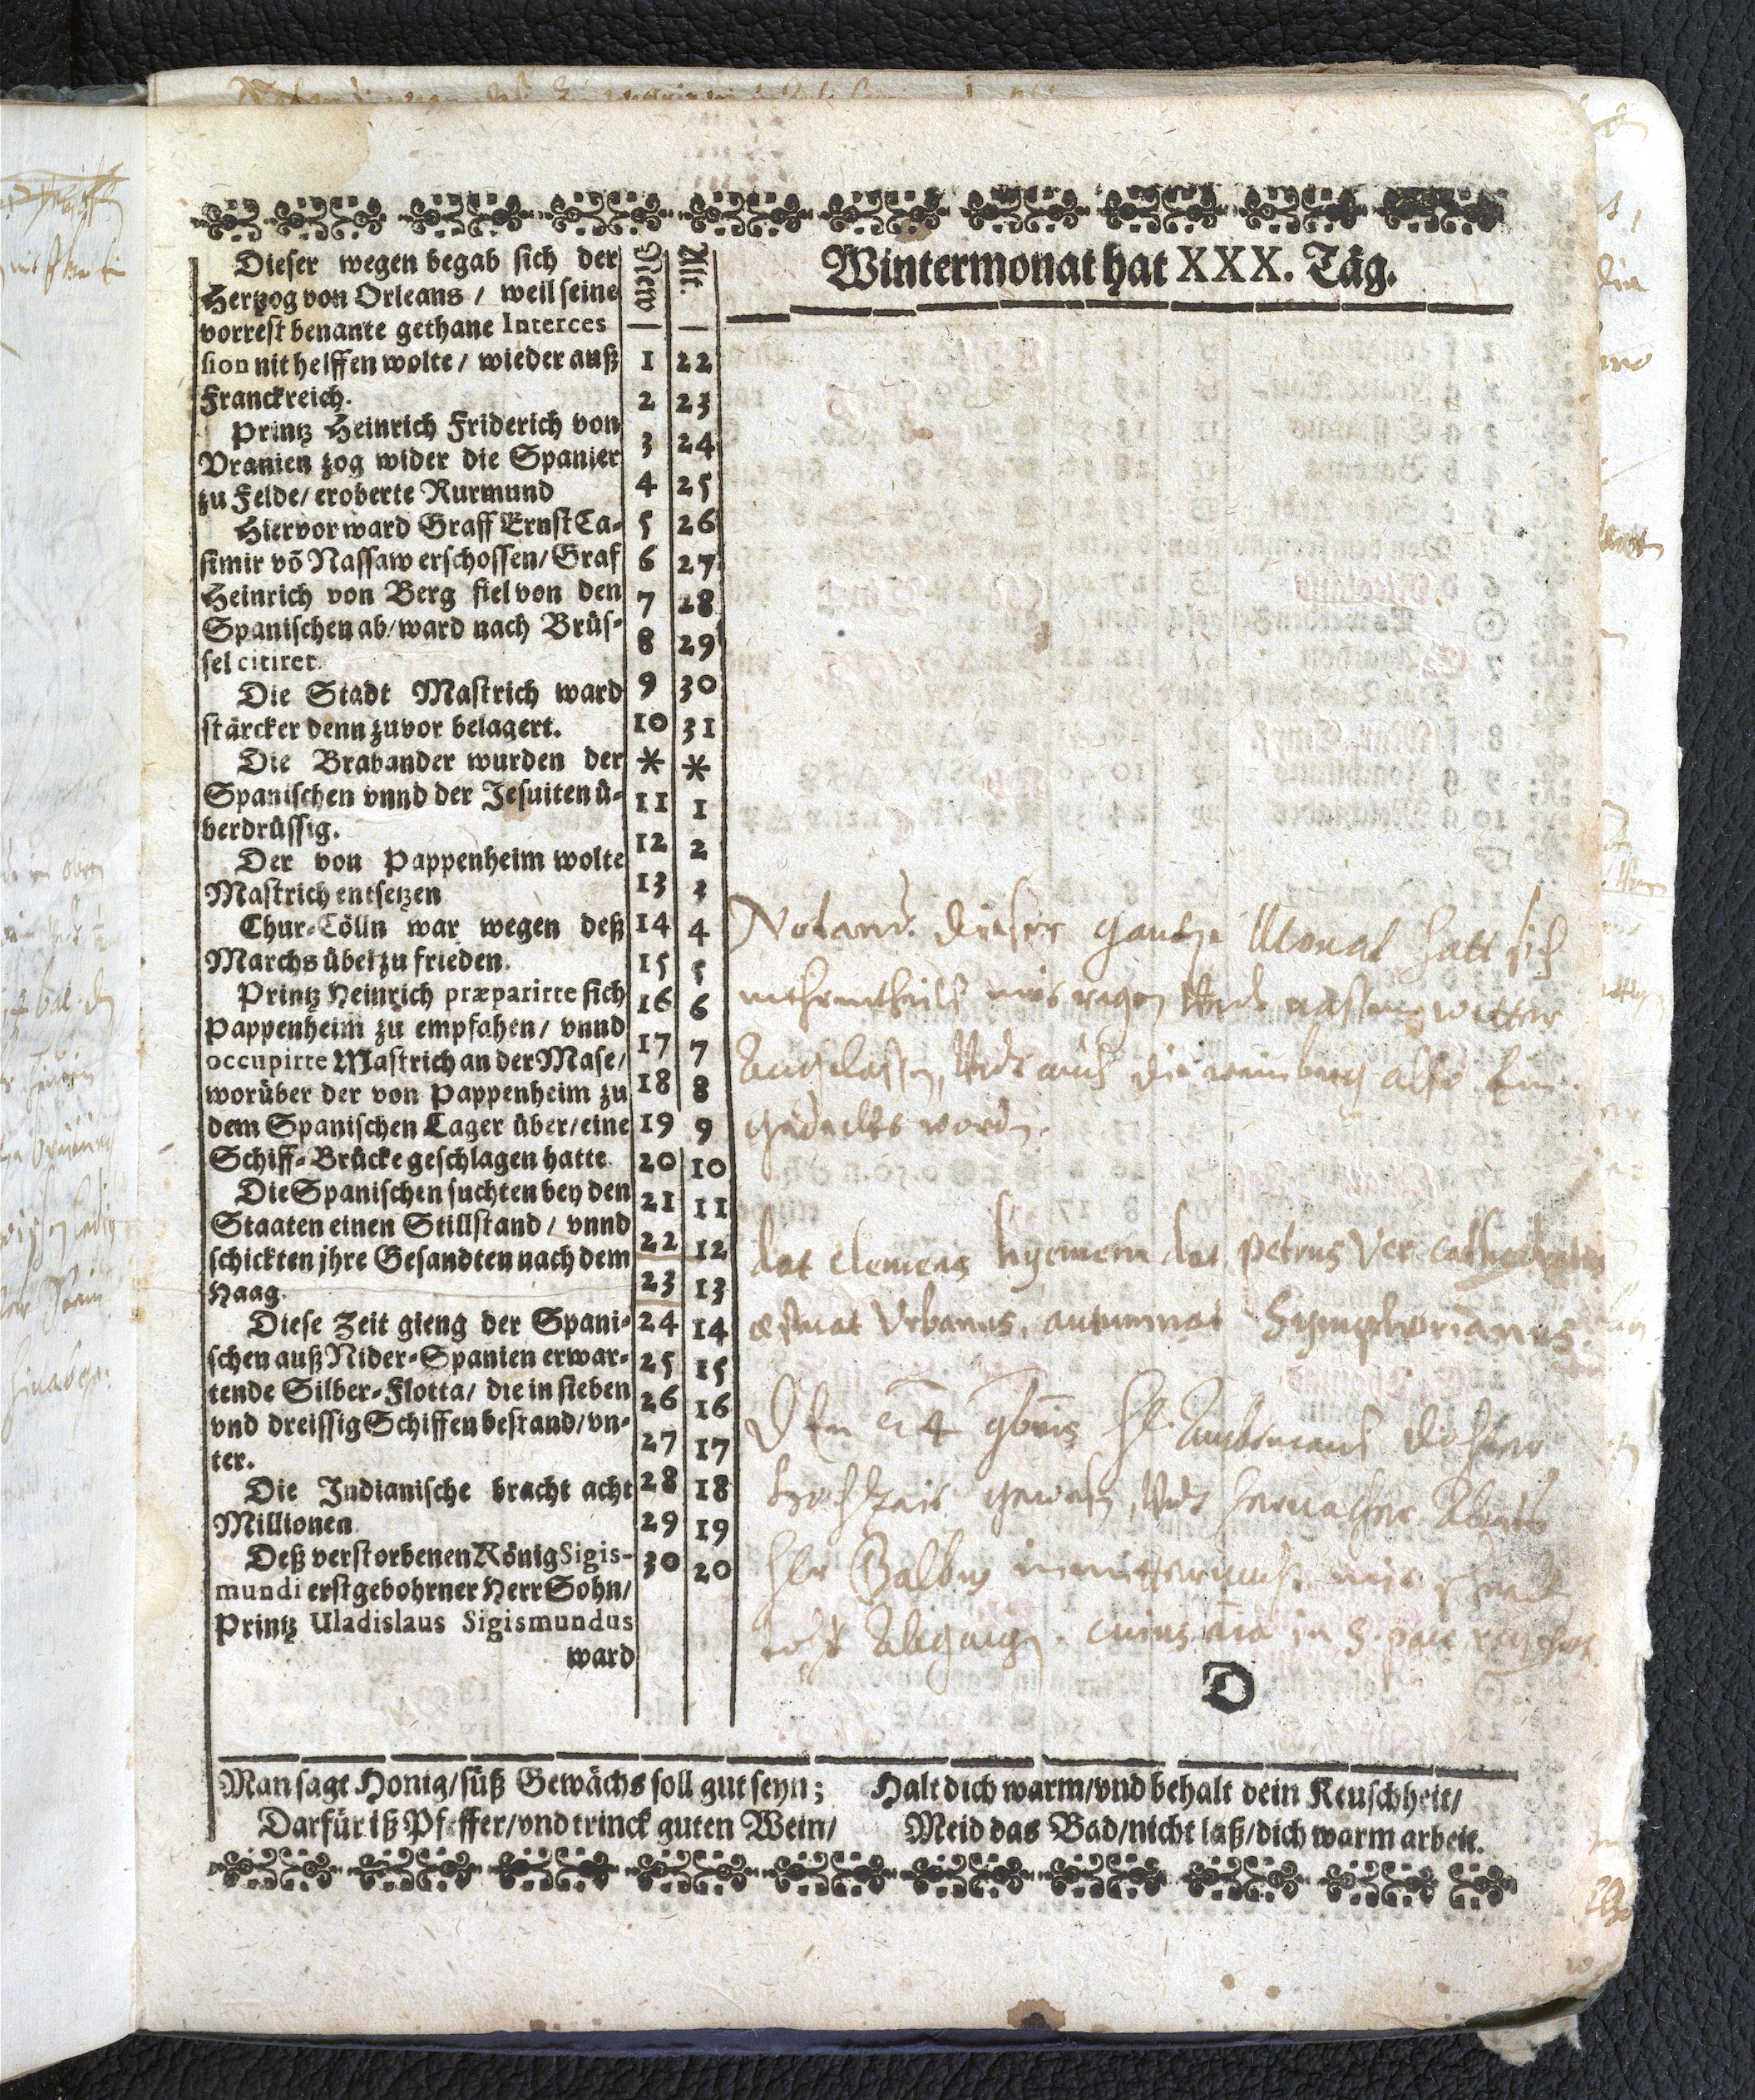 Wintermonat hat XXX. Täg.
Dieser wegen begab sich der
Hertzog von Orleans / weil seine
vorrest benante gethane Interces
sion nit helffen wolte / wieder auß
Franckreich.
Printz Heinrich Friderich von
Vranien zog wider die Spanier
zu Felde / eroberte Rurmund
Hiervor ward Graff Ernst Ca-
simir võ Nassaw erschossen / Graf
Heinrich von Berg fiel von den
Spanischen ab / ward nach Brüs-
sel citiret.
Die Stadt Mastrich ward
stärcker denn zuvor belagert.
Die Brabander wurden der
Spanischen vnnd der Jesuiten ü-
berdrüssig.
Der von Pappenheim wolte
Mastrich entsetzen
Chur-Cölln war wegen deß
Marchs übel zu frieden.
Printz Heinrich præparirte sich
Pappenheim zu empfahen / vnnd
occupirte Mastrich an der Mase /
worüber der von Pappenheim zu
dem Spanischen Lager über / eine
Schiff-Brücke geschlagen hatte
Die Spanischen suchten bey den
Staaten einen Stillstand / vnnd
schickten jhre Gesandten nach dem
Haag.
Diese Zeit gieng der Spani-
schen auß Nider-Spanien erwar-
tende Silber-Flotta / die in sieben
vnd dreissig Schiffen bestand / vn-
ter.
Die Indianische bracht acht
Millionen
Deß verstorbenen König Sigis-
mundi erstgebohrner Herr Sohn /
Printz Uladislaus Sigismundus
ward
New Alt.
1 22
2 23
3 24
4 25
5 26
6 27
7 28
8 29
9 30
10 31
* *
11 1
12 2
13 3
14 4
15 5
16 6
17 7
18 8
19 9
20 10
21 11
22 12
23 13
24 14
25 15
26 16
27 17
28 18
29 19
30 20
Notand. dieser gantze Monat hatt sich
mehrentheils mit regen vnd nassem wetter
angelassen, vnd auch die weinberg also ein
gedeckt worden.
dat clemens hyemem dat petrus Ver cathedratus
æstuat Vrbanus, autumnat Symphorianus.
Den 24 9bris
hochzeit gewesen, vnd
Galbus mit
todt abgangen. cuius aīa in S. pace
D
Man sagt Honig / süß Gewächs soll gut seyn;
Darfür iß Pfeffer / vnd trinck guten Wein /
Halt dich warm / vnd behalt dein Keuschheit /
Meid das Bad / nicht laß / dich warm arbeit.